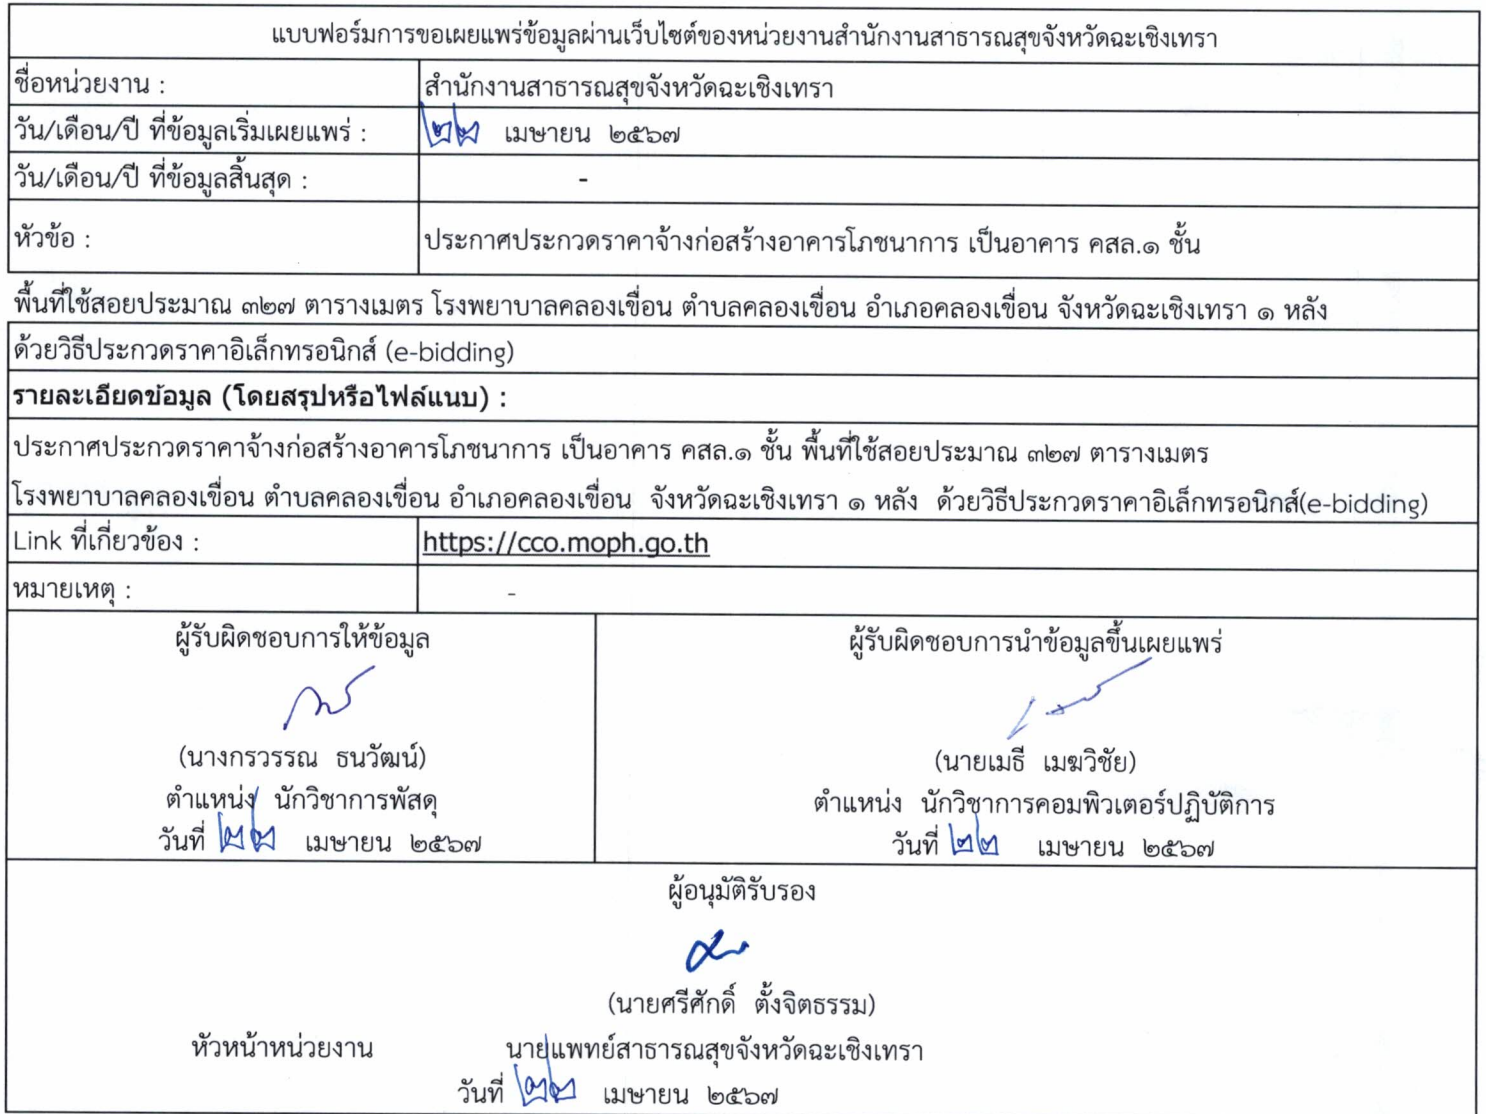 แบบฟอร์มการขอเผยแพร่ข้อมูลผ่านเว็บไซต์ของหน่วยงานสำนักงานสาธารณสุขจังหวัดฉะเชิงเทรา
ชื่อหน่วยงาน : สำนักงานสาธารณสุขจังหวัดฉะเชิงเทรา
วัน/เดือน/ปี ที่ข้อมูลเริ่มเผยแพร่ : ๒๒ เมษายน ๒๕๖๗
วัน/เดือน/ปี ที่ข้อมูลสิ้นสุด : -
หัวข้อ : ประกาศประกวดราคาจ้างก่อสร้างอาคารโภชนาการ เป็นอาคาร คสล.๑ ชั้น
พื้นที่ใช้สอยประมาณ ๓๒๗ ตารางเมตร โรงพยาบาลคลองเขื่อน ตำบลคลองเขื่อน อำเภอคลองเขื่อน จังหวัดฉะเชิงเทรา ๑ หลัง
ด้วยวิธีประกวดราคาอิเล็กทรอนิกส์ (e-bidding)
รายละเอียดข้อมูล (โดยสรุปหรือไฟล์แนบ) :
ประกาศประกวดราคาจ้างก่อสร้างอาคารโภชนาการ เป็นอาคาร คสล.๑ ชั้น พื้นที่ใช้สอยประมาณ ๓๒๗ ตารางเมตร
โรงพยาบาลคลองเขื่อน ตำบลคลองเขื่อน อำเภอคลองเขื่อน จังหวัดฉะเชิงเทรา ๑ หลัง ด้วยวิธีประกวดราคาอิเล็กทรอนิกส์(e-bidding)
Link ที่เกี่ยวข้อง : https://cco.moph.go.th
หมายเหตุ : -
ผู้รับผิดชอบการให้ข้อมูล
(นางกรวรรณ ธนวัฒน์)
ตำแหน่ง นักวิชาการพัสดุ
วันที่ ๒๒ เมษายน ๒๕๖๗
ผู้รับผิดชอบการนำข้อมูลขึ้นเผยแพร่
(นายเมธี เมฆวิชัย)
ตำแหน่ง นักวิชาการคอมพิวเตอร์ปฏิบัติการ
วันที่ ๒๒ เมษายน ๒๕๖๗
ผู้อนุมัติรับรอง
(นายศรีศักดิ์ ตั้งจิตธรรม)
หัวหน้าหน่วยงาน นายแพทย์สาธารณสุขจังหวัดฉะเชิงเทรา
วันที่ ๒๒ เมษายน ๒๕๖๗